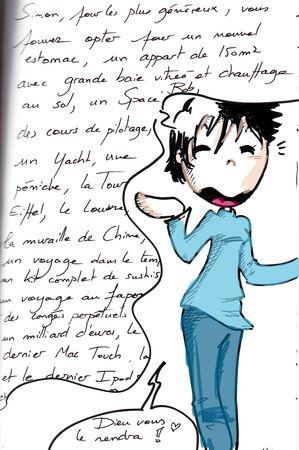 Sinon, pour les plus généreux, vous
pouvez opter pour un nouvel
estomac, un appart de 150m2
avec grande baie vitrée et chauffage
au sol, un Space Bob,
des cours de pilotage,
un Yacht, une
péniche, la Tour
Eiffel, le Louvre,
la muraille de Chine,
un voyage dans le tem
un kit complet de sushis
un voyage au Japon
des congés perpétuels
un milliard d'euros, le
dernier Mac Touch,
et le dernier Ipod
Dieu vous
le rendra !! ♡